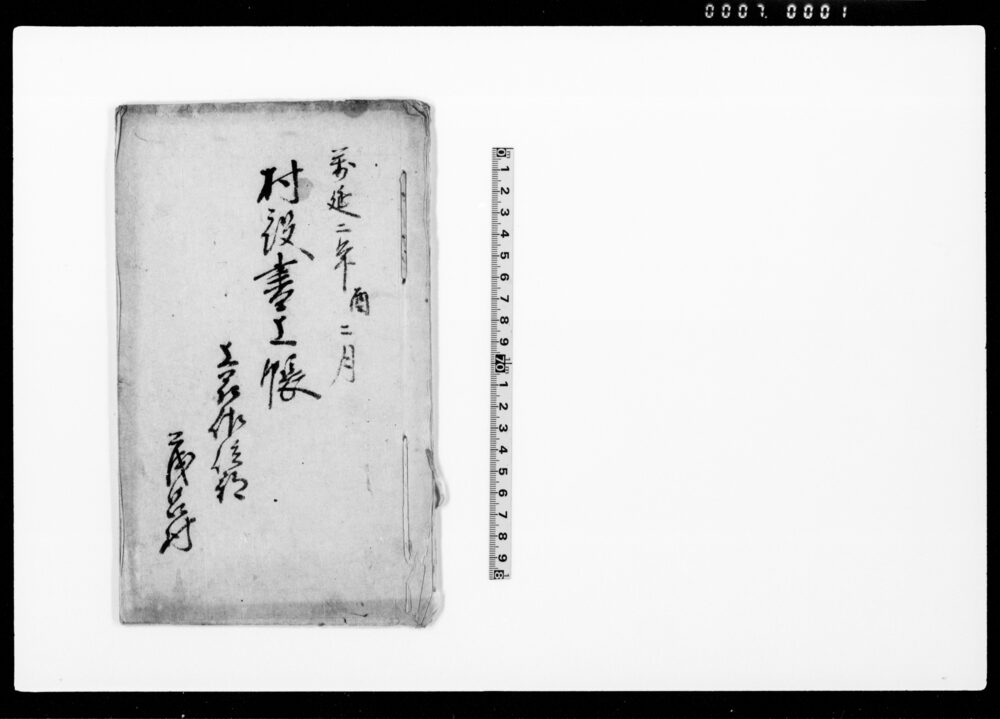 0007. 0001
萬延二年酉二月
村設書上帳
上州佐位郡
茂呂村
0 1 2 3 4 5 6 7 8 9 10 1 2 3 4 5 6 7 8 9